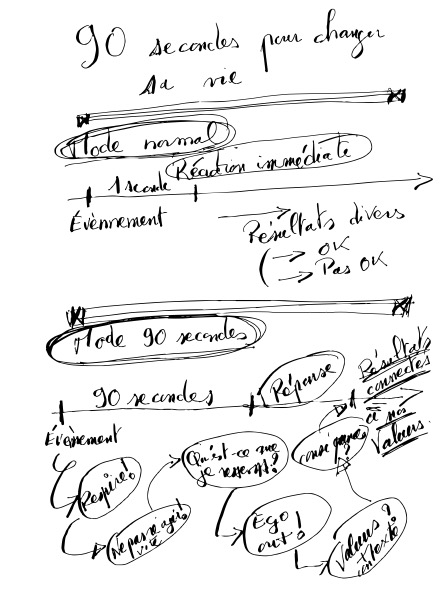 90 secondes pour changer
sa vie
Mode normal
Réaction immédiate
1 seconde
Évènnement
Résultats divers
→ OK
→ Pas OK
Mode 90 secondes
90 secondes
Réponse
Résultats
connectés
à nos
valeurs.
Évènnement
Respire!
Ne pas réagir!
vite
Qu'est-ce que
je ressens?
Ego
out!
Valeurs?
contexte?